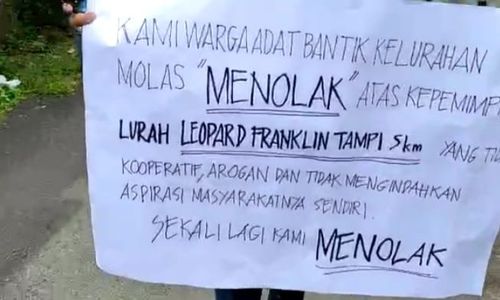 KAMI WARGA ADAT BANTIK KELURAHAN
MOLAS "MENOLAK" ATAS KEPEMIMP
LURAH LEOPARD FRANKLIN TAMPI Skm YANG TID
KOOPERATIF, AROGAN DAN TIDAK MENGINDAHKAN
ASPIRASI MASYARAKATNYA SENDIRI.
SEKALI LAGI KAMI MENOLAK